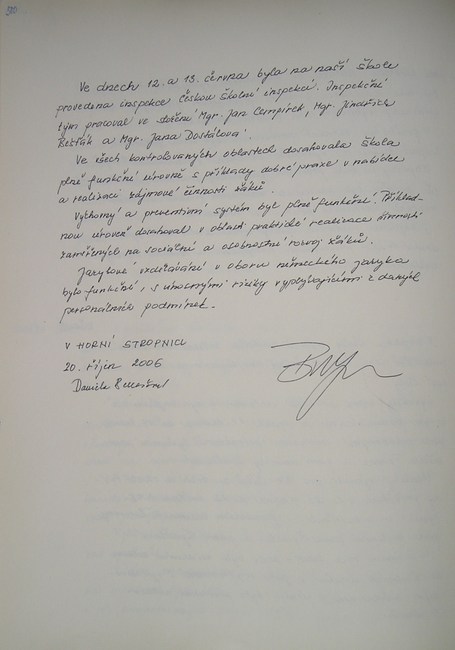 Ve dnech 12. a 13. června byla na naší škole
provedena inspekce Českou školní inspekcí. Inspekční
tým pracoval ve složení Mgr. Jan Cempírek, Mgr. Jindřich
Bešťák a Mgr. Jana Dostálová.
Ve všech kontrolovaných oblastech dosahovala škola
plně funkční úrovně s příklady dobré praxe v nabídce
a realizaci zájmové činnosti žáků.
Výchovný a preventivní systém byl plně funkční. Příklad-
nou úroveň dosahoval v oblasti praktické realizace činností
zaměřených na sociální a osobnostní rozvoj žáků.
Jazykové vzdělávání v oboru německého jazyka
bylo funkční, i s únosnými riziky vyplývajícími z daných
personálních podmínek.
V HORNÍ STROPNICI
20. říjen 2006
Daniela